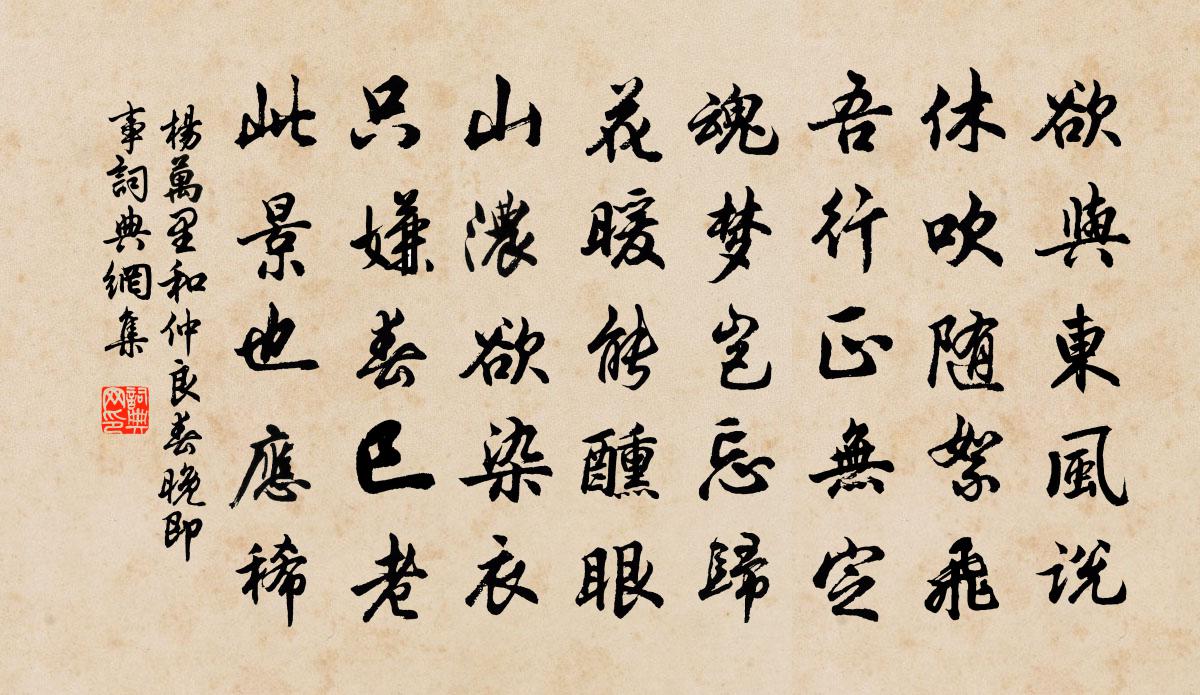 欲與東風説
休吹随絮飛
吾行正無定
魂梦岂忘歸
花暖能醺眼
山濃欲染衣
只嫌春已老
此景也應稀
楊萬里和仲良春晚即
事詞典網集
詞典
网印